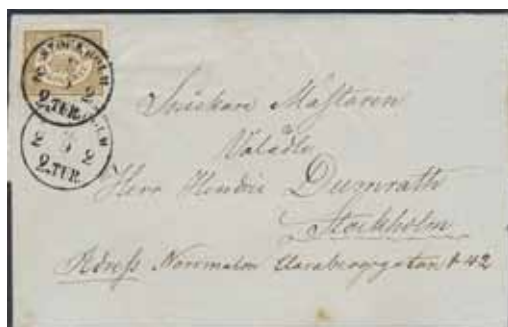 STOCKHOLM
2 2
2.TUR.
2 5 2
2.TUR.
Snickare Mästaren
Herr Hendric Dumrath
Stockholm
Adress Norrmalm Clarabergsgatan 42